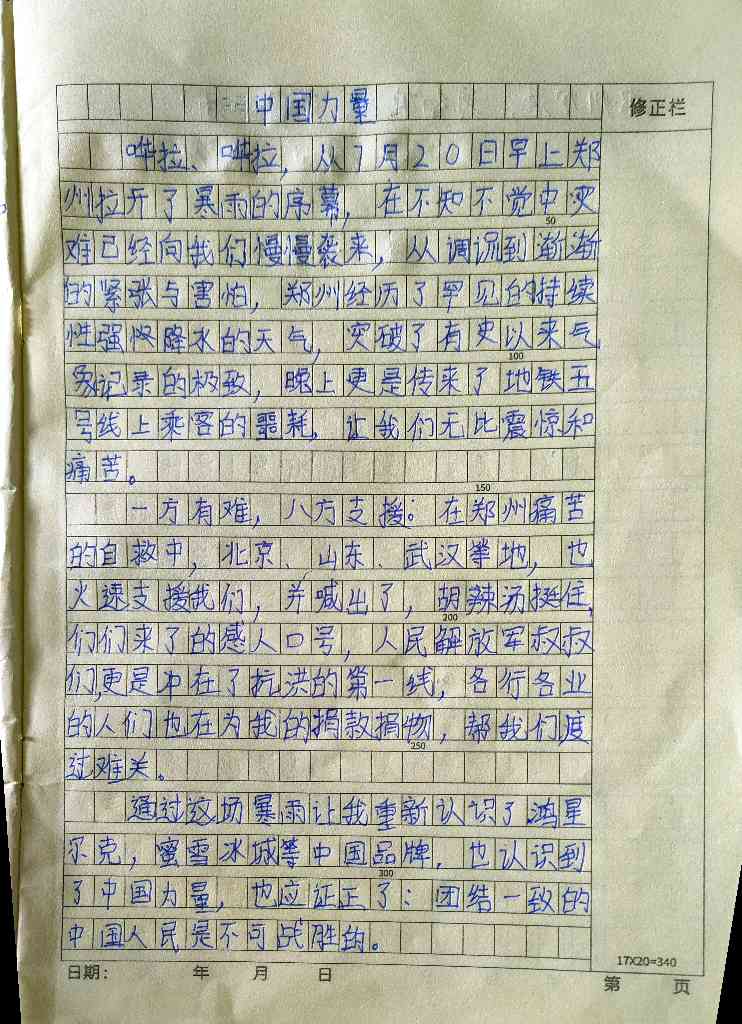 中国力量
修正栏
哗拉、哗拉，从7月20日早上郑
州拉开了暴雨的序幕，在不知不觉中灾
50
难已经向我们慢慢袭来，从调侃到渐渐
的紧张与害怕，郑州经历了罕见的持续
性强降水的天气，突破了有史以来气
100
象记录的极致，晚上更是传来了地铁五
号线上乘客的噩耗，让我们无比震惊和
痛苦。
150
一方有难，八方支援。在郑州痛苦
的自救中，北京、山东、武汉等地，也
火速支援我们，并喊出了，胡辣汤挺住，
200
们们来了的感人口号，人民解放军叔叔
们，更是冲在了抗洪的第一线，各行各业
的人们也在为我的捐款捐物，帮我们度
250
过难关。
通过这场暴雨让我重新认识了鸿星
尔克，蜜雪冰城等中国品牌，也认识到
300
了中国力量，也应证正了：团结一致的
中国人民是不可战胜的。
17X20=340
日期： 年 月 日
第 页